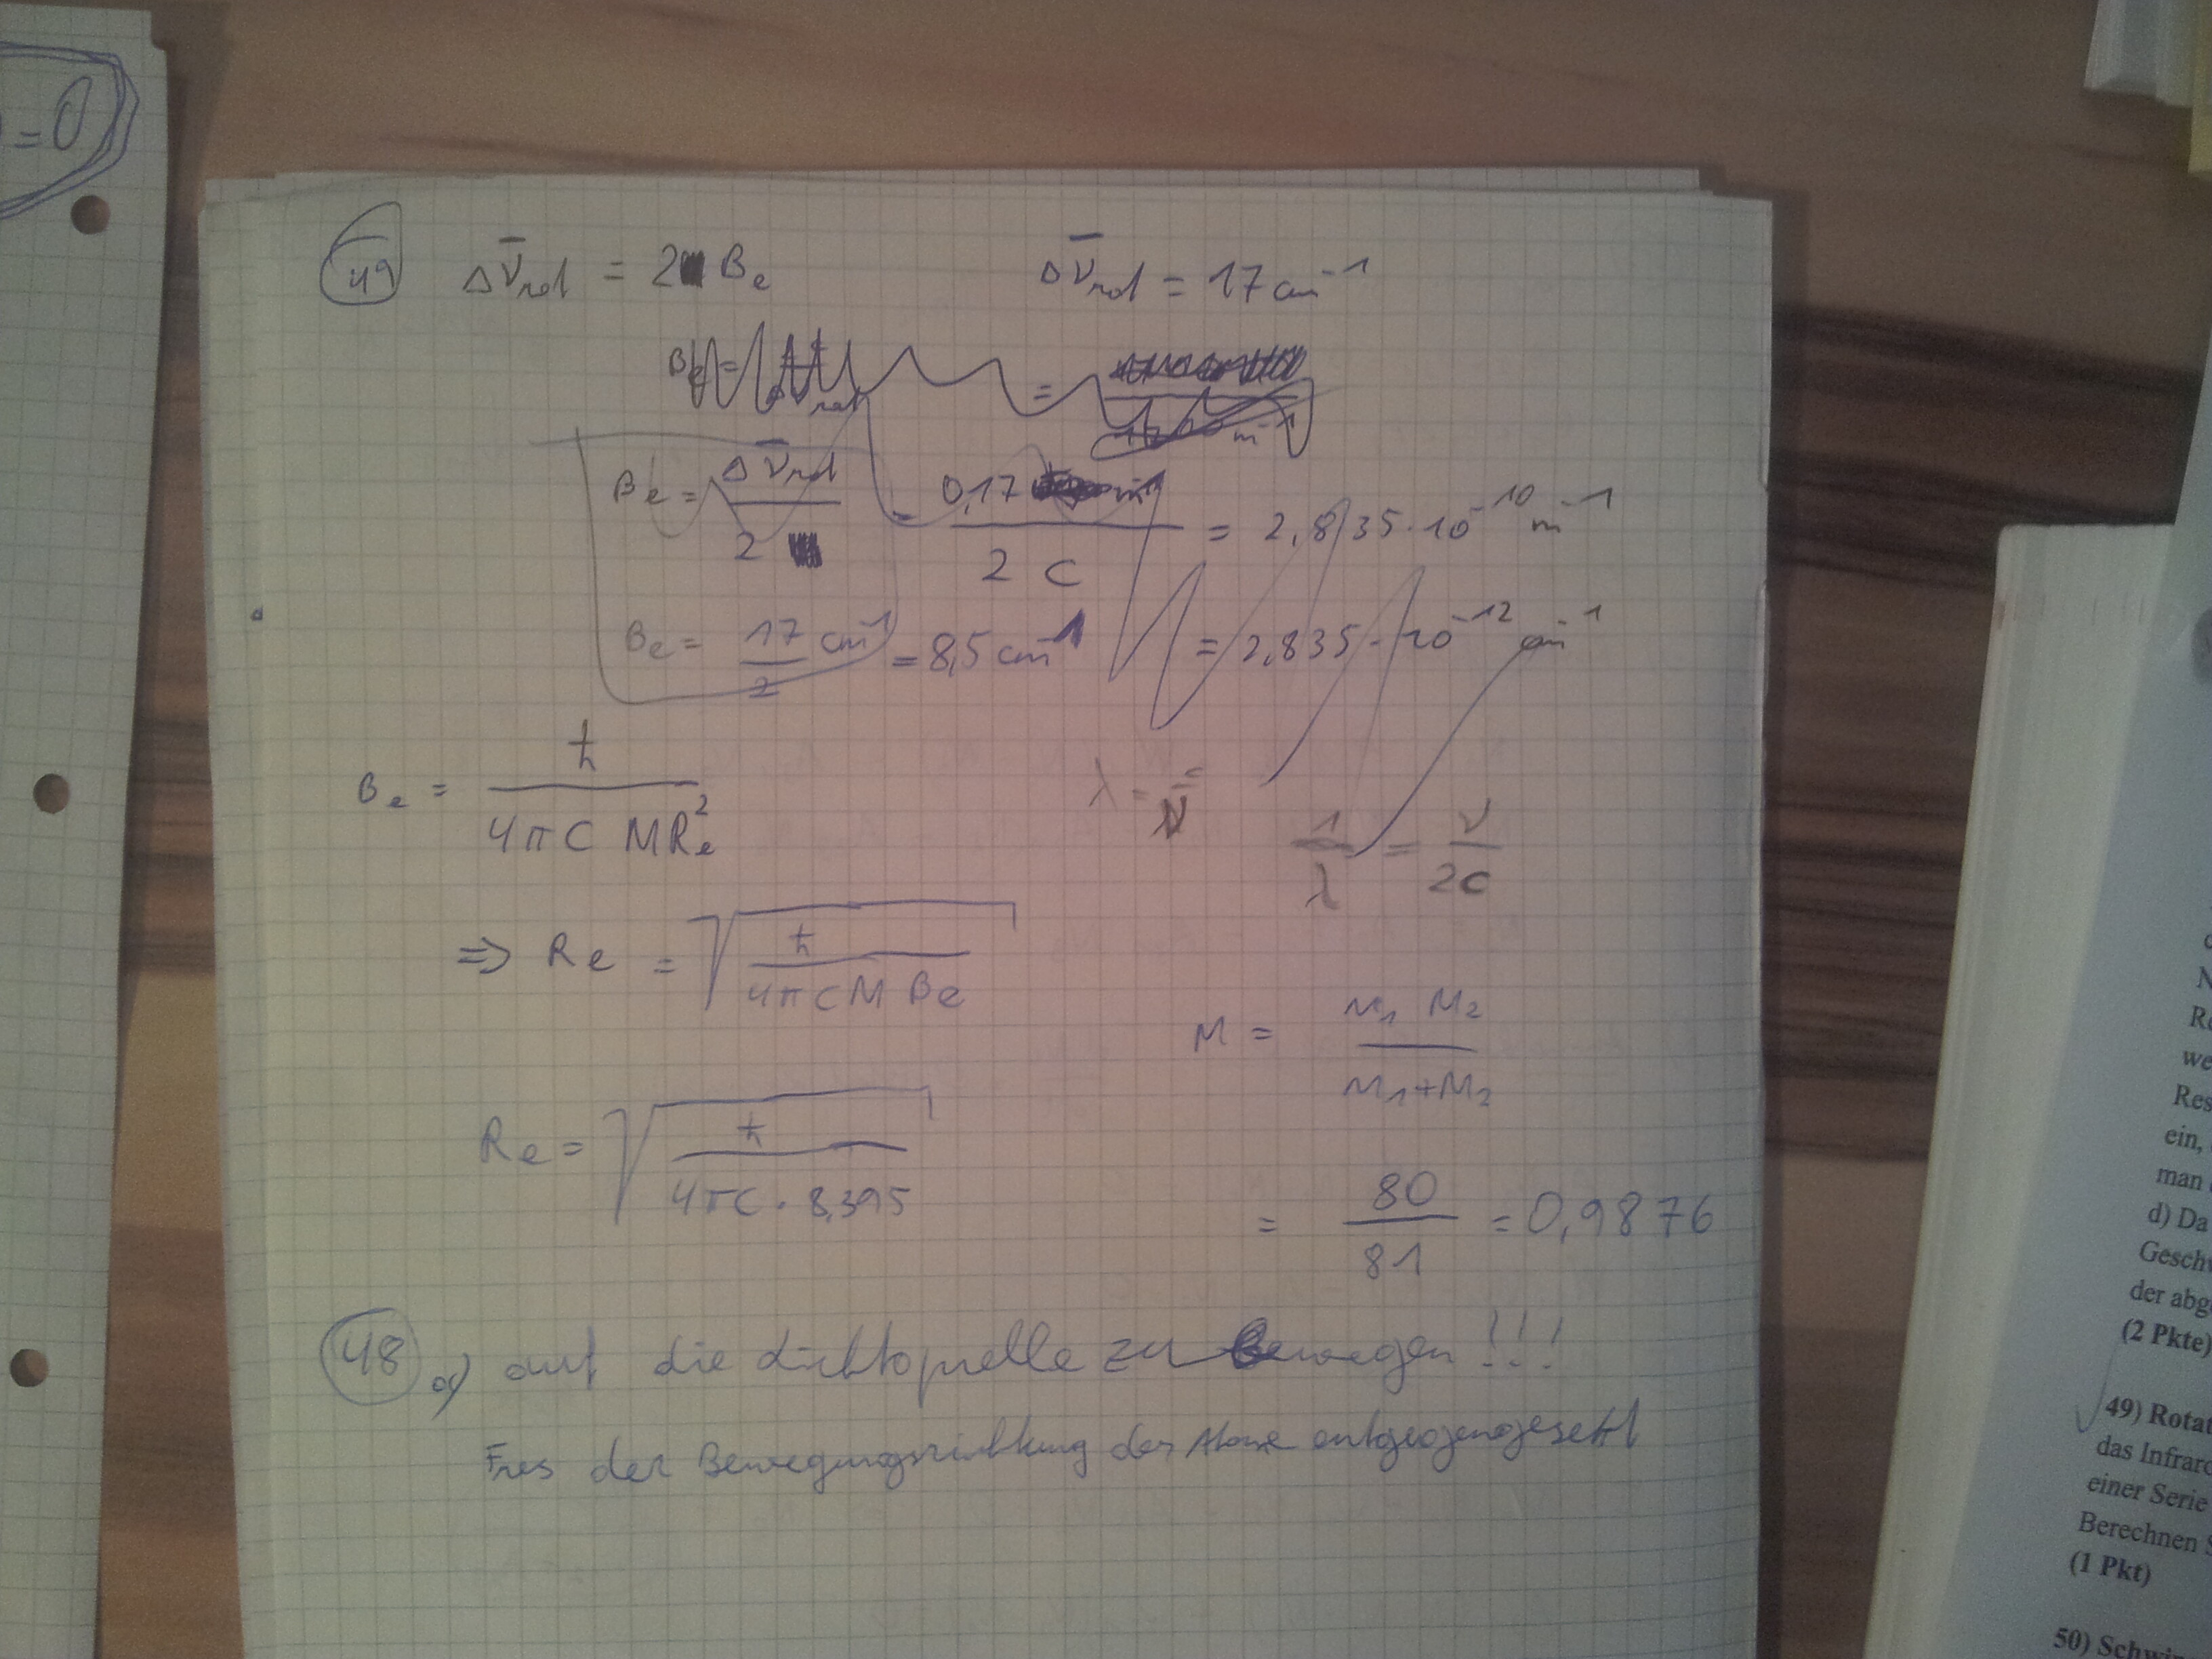 =0
49 Δν̄rot = 2 Be Δν̄rot = 17 cm⁻¹
Be =
=
m⁻¹
Be = Δν̄rot / 2 = 0,17 / 2 C = 2,835 · 10⁻¹⁰ m⁻¹
Be = 17/2 cm⁻¹ = 8,5 cm⁻¹ = 2,835 · 10⁻¹² cm⁻¹
Be = ħ / 4πC MRe² λ =
1/λ = ν/2c
⇒ Re = √(ħ / 4πCM Be)
M = M₁ M₂ / M₁+M₂
Re = √(ħ / 4πC · 8,395)
= 80/81 = 0,9876
48 a) auf die Lichtquelle zu bewegen!!!
der Bewegungsrichtung der Atome entgegengesetzt
we
Res
ein,
man
d) Da
Geschw
der abg
(2 Pkte)
49) Rotat
das Infraro
einer Serie
Berechnen S
(1 Pkt)
50) Schwin